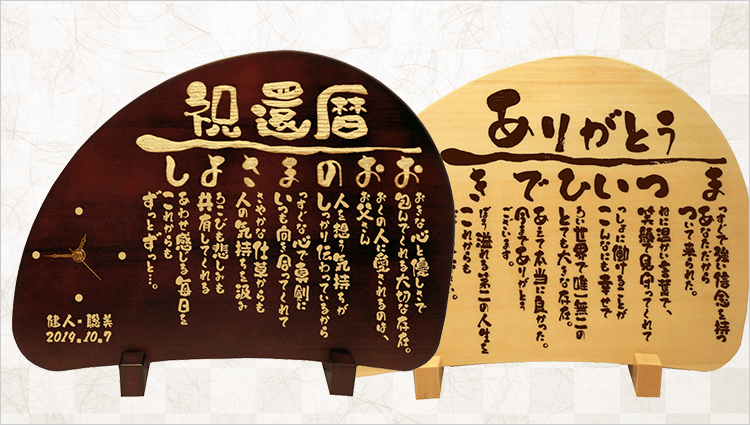 祝還暦
しよさまのおお
おきな心と優しさで
包んでくれる大切な存在。
おくの人に愛されるのは、
お父さん
人を想う気持ちが
しっかり伝わっているから
っすぐな心で真剣に
いつも向き合ってくれて
さやかな仕草からも
人の気持ちを汲み
ろこびも悲しみも
共有してくれる
あわせ感じる毎日を
これからも
ずっとずっと…。
健人・聡美
2019.10.7
ありがとう
きでひいつま
っすぐで強い信念を持つ
あなただから
ついて来られた。
ねに温かい言葉で、
笑顔で見守ってくれて
っしょに働けることが
こんなにも幸せで
とても大きな存在。
あえて本当に良かった。
今までありがとう
ございます。
ぼう溢れる第二の人生を
これからも